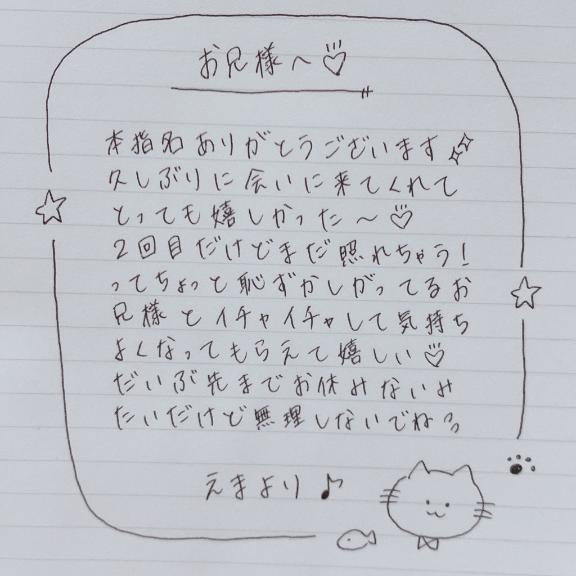 お兄様へ♡
本指名ありがとうございます✨
久しぶりに会いに来てくれて
とっても嬉しかった〜♡
2回目だけどまだ照れちゃう!
ってちょっと恥ずかしがってるお
兄様とイチャイチャして気持ち
よくなってもらえて嬉しい♡
だいぶ先までお休みないみ
たいだけど無理しないでねっ
えまより♪